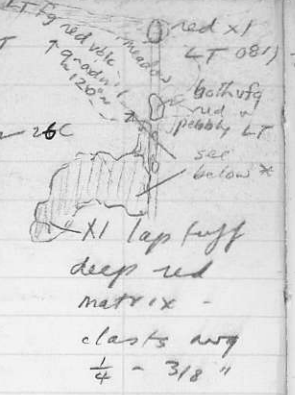 LT fg red volc
meadow
gradual
~120m
red xl
LT 081)
both vfg
red &
pebbly LT
see
below *
26C
xl lap tuff
deep red
matrix -
clasts avg
1/4 - 3/8 "